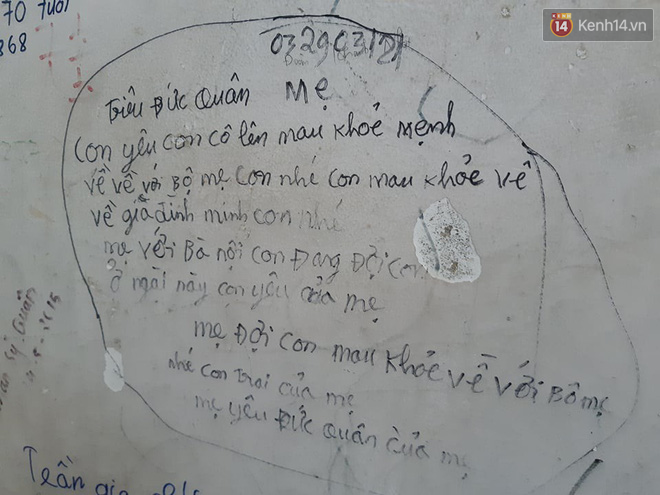 70 tuổi
868
14 Kenh14.vn
Triệu Đức Quân Mẹ
Con yêu con cô lên mau khoẻ mệnh
về về với Bộ mẹ con nhé con mau khoẻ về
về gia đình minh con nhé
mẹ với Bà nội con Đang Đội con
ở mại này con yêu của mẹ
mẹ Đợi con mau khoẻ về với Bô mẹ
nhé con trai của mẹ
mẹ yêu Đức Quân của mẹ
Trần gia